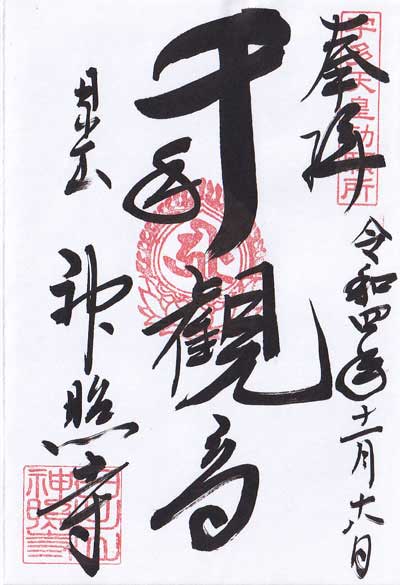 宇多天皇勅願所
奉拝
令和四年十一月
千手觀音
神照寺
神照寺